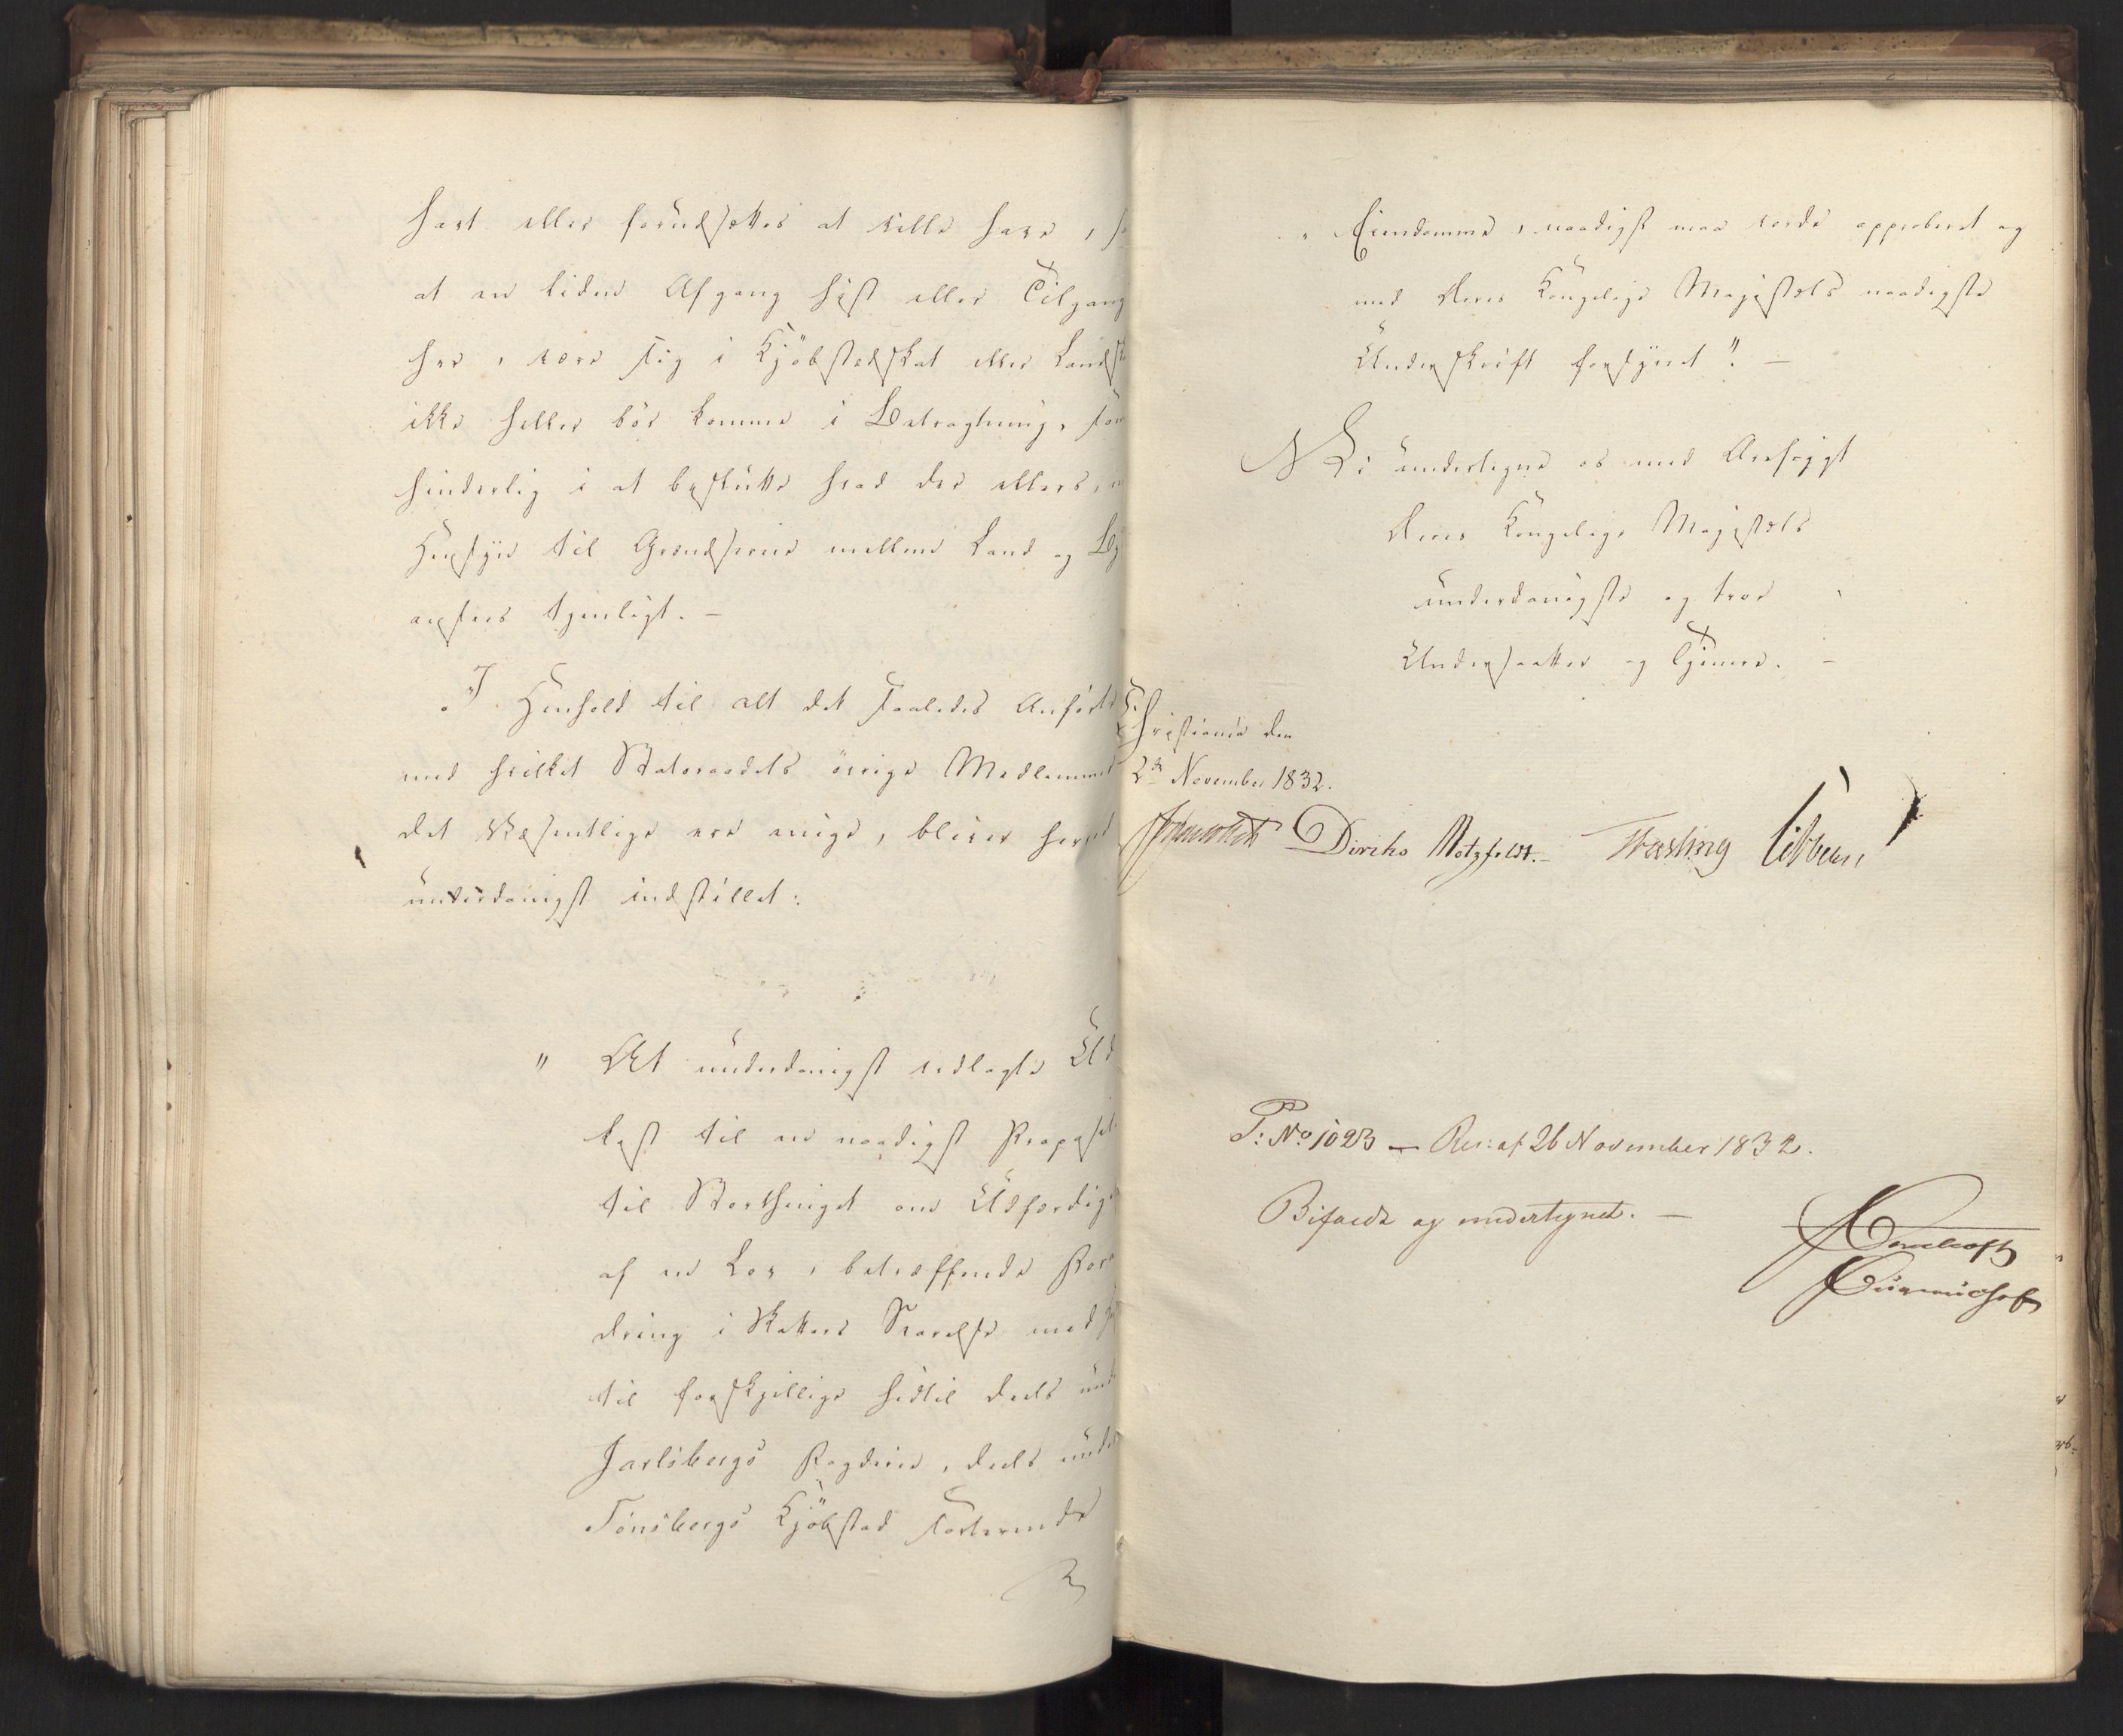 havt eller forudsættes at ville have,
at en liden Afgang hist eller Tilgang
her, være sig i Kjöbstadskat eller
ikke heller bör komme i Betragtning, som
hinderlig i at beslutte hvad der ellers,
Hensyn til Grændserne mellem Land og By
ansees tjenligt. –
I Henhold til alt det saaledes Anförte
med hvilket Statsraadets övrige Medlemmer
det Væsentlige ere enige, bliver herved
underdanigst indstillet:
" At underdanigst vedlagte Ud
kast til en naadigst Proposit
til Storthinget om Udfærdig
af en Lov, betræffende Foran
dring i Skatters Svarelse med
til forskjellige hidtil deels under
Jarlsbergs Fogderie, deels under
Tönsbergs Kjöbstad sorterende
" Eiendomme, naadigst maa vorde approberet og
med Deres Kongelige Majestæts naadigste
Underskrift forsynet". –
Vi undertegne os med Ærefrygt
Deres Kongelige Majestæts
underdanigste og troe
Undersaatter og Tjenere. –
Christiania den
2de November 1832.
Diriks Motzfeldt. – Fasting Vibe
P: No 1023 – Res: af 26 November 1832.
Bifaldt og undertegnet. –